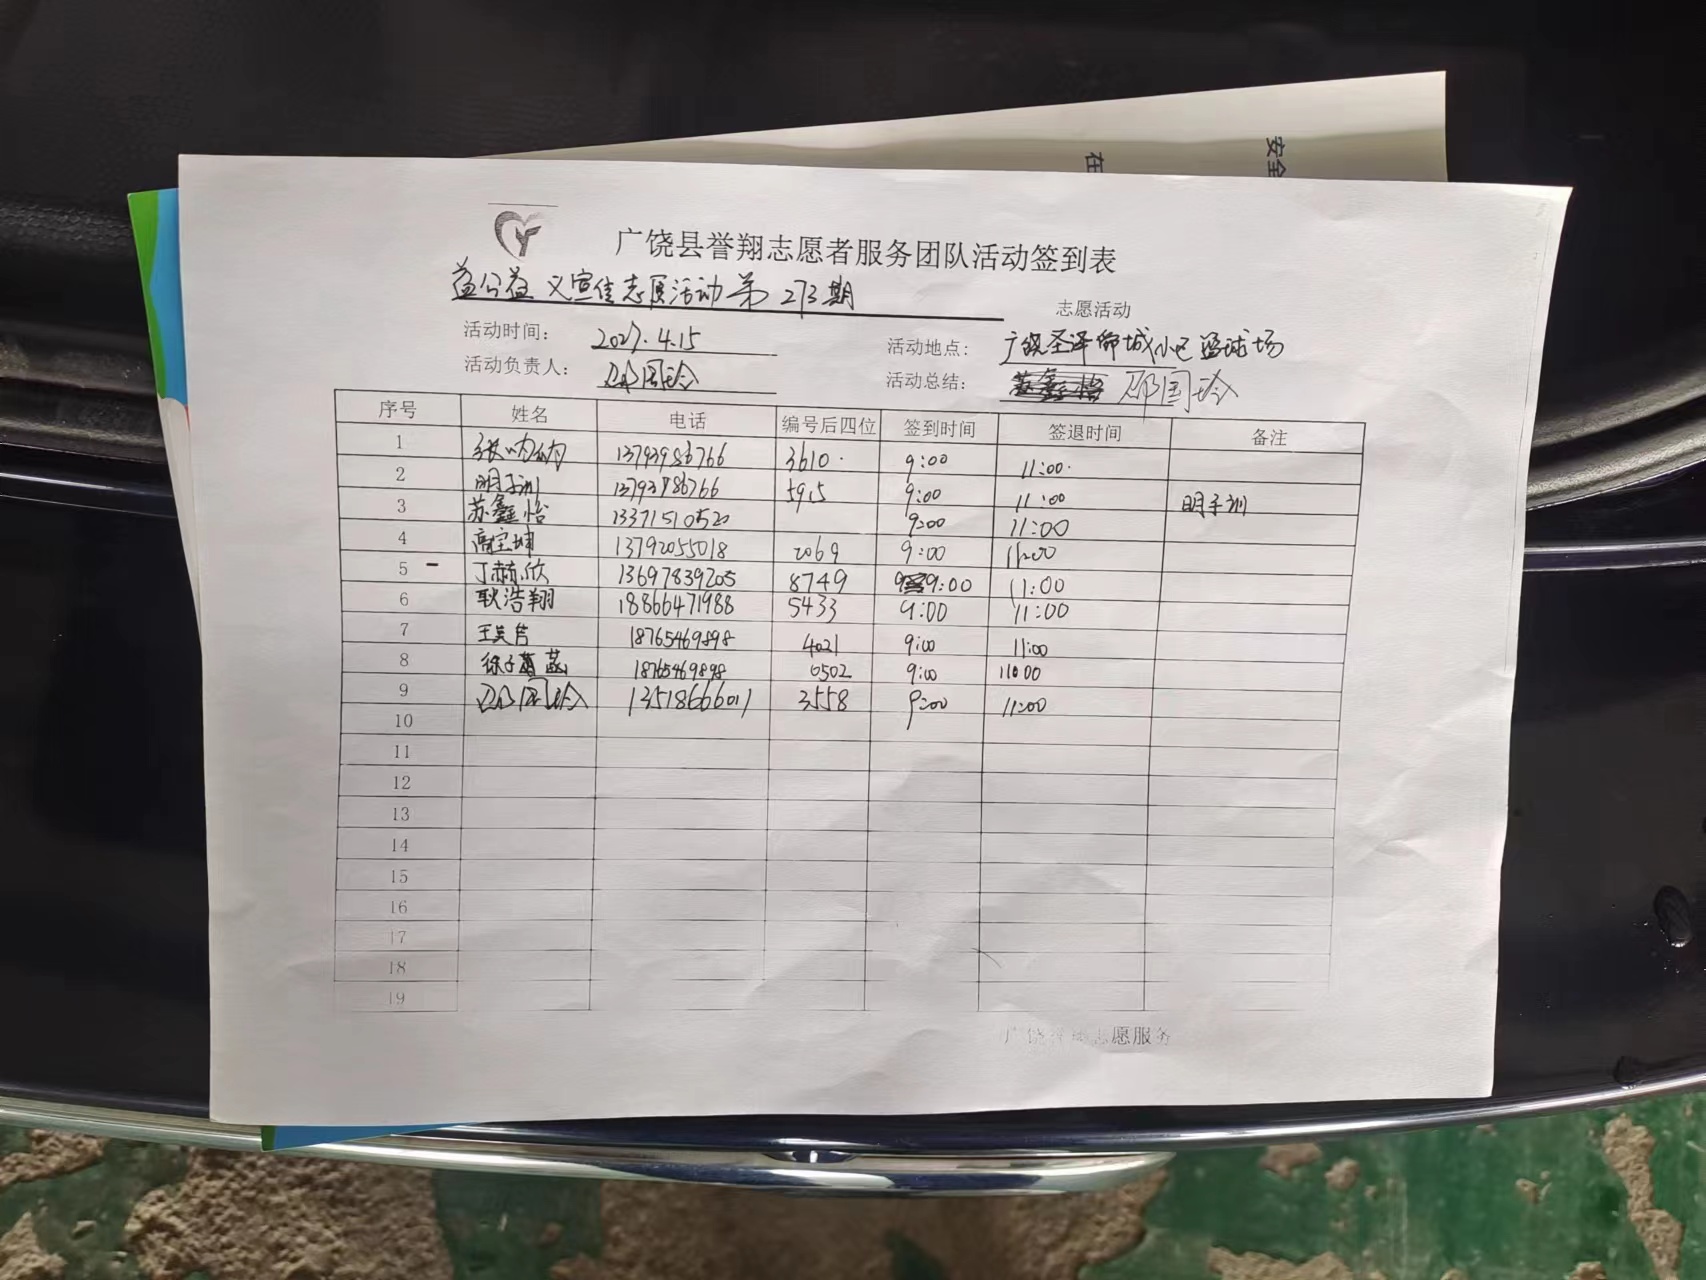 安全
在
广饶县誉翔志愿者服务团队活动签到表
益公益 义宣传志愿活动第 273期 志愿活动
活动时间: 2027.4.15 活动地点: 广饶圣泽御城小区篮球场
活动负责人: 邵国玲 活动总结: 邵国玲
序号 姓名 电话 编号后四位 签到时间 签退时间 备注
1 13793986766 3610 9:00 11:00
2 明子训 13793986766 5915 9:00 11:00 明子训
3 苏鑫怡 13371510520 9:00 11:00
4 高宝坤 13792055018 2069 9:00 11:00
5 丁赫欣 13697839205 8749 9:00 11:00
6 耿浩翔 18866471988 5433 9:00 11:00
7 18765469898 4021 9:00 11:00
8 徐子涵 18765469898 0502 9:00 11:00
9 邵国玲 13518666011 3558 9:00 11:00
10
11
12
13
14
15
16
17
18
19
广饶誉翔志愿服务